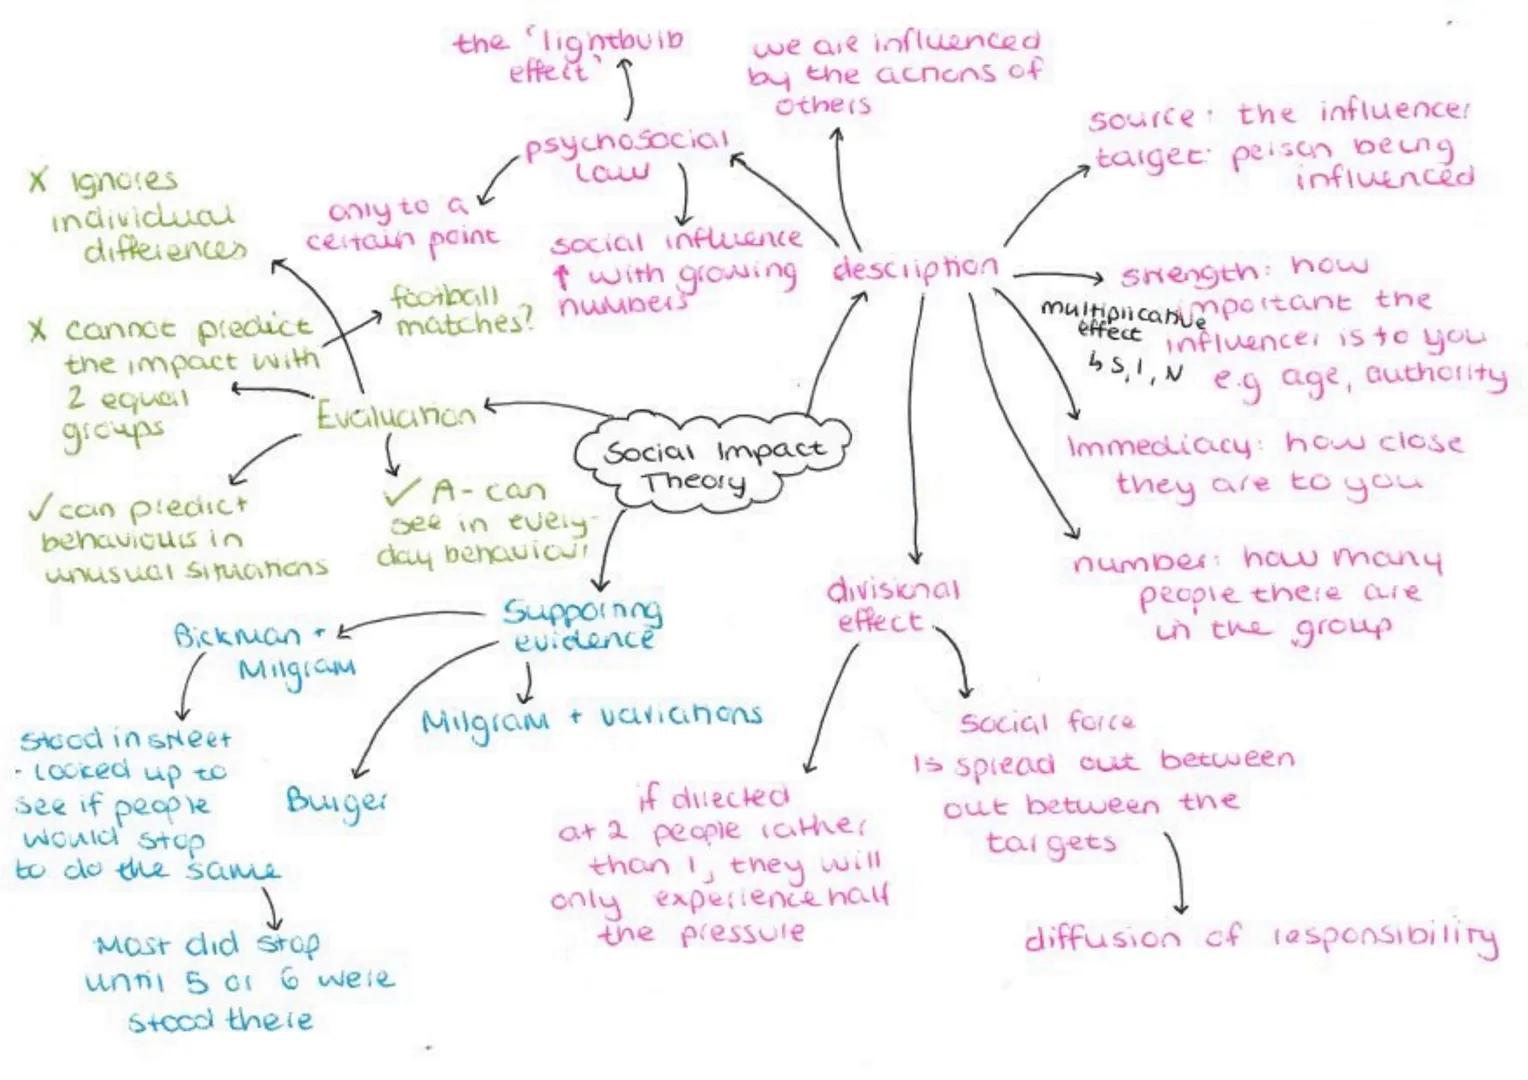 the 'lightbulb
effect'
we are influenced
by the actions of
others
psychosocial
law
only to a
certain point
social influence
↑ with growing
numbers
description
source: the influencer
target: person being
influenced
strength: how
important the
influencer is to you
e.g age, authority
multiplicative
effect
↳ S, I, N
Immediacy: how close
they are to you
number: how many
people there are
in the group
divisional
effect
if directed
at 2 people rather
than 1, they will
only experience half
the pressure
social force
is spread out between
out between the
targets
diffusion of responsibility
Social Impact
Theory
Evaluation
X Ignores
individual
differences
X cannot predict
the impact with
2 equal
groups
football
matches?
✓ can predict
behaviours in
unusual situations
✓ A - can
see in every-
day behaviour
Supporting
evidence
Bickman +
Milgram
stood in street
- looked up to
see if people
would stop
to do the same
Most did stop
until 5 or 6 were
stood there
Burger
Milgram + variations